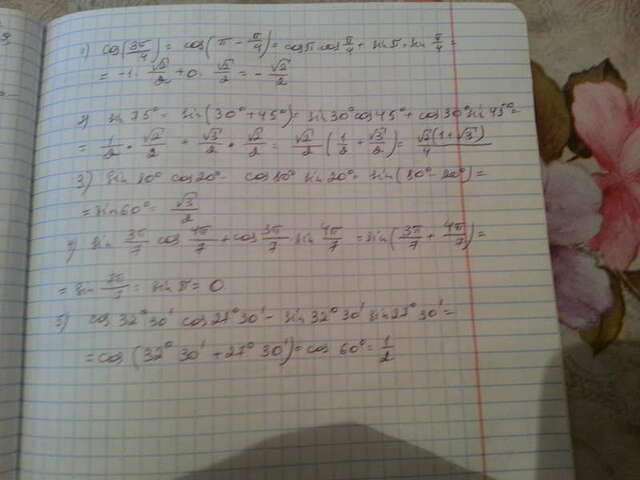 1) cos(3π/4) = cos(π - π/4) = cosπ·cos π/4 + sinπ·sin π/4 =
= -1·√2/2 + 0·√2/2 = -√2/2
2) sin 75° = sin(30° + 45°) = sin30°cos45° + cos30°sin45° =
= 1/2·√2/2 + √3/2·√2/2 = √2/2(1/2 + √3/2) = √2(1+√3)/4
3) sin80°cos20° - cos80°sin20° = sin(80° - 20°) =
= sin60° = √3/2
4) sin 3π/7 cos 4π/7 + cos 3π/7 sin 4π/7 = sin(3π/7 + 4π/7) =
= sin 7π/7 = sinπ = 0
5) cos32°30' cos27°30' - sin32°30' sin27°30' =
= cos(32°30' + 27°30') = cos 60° = 1/2